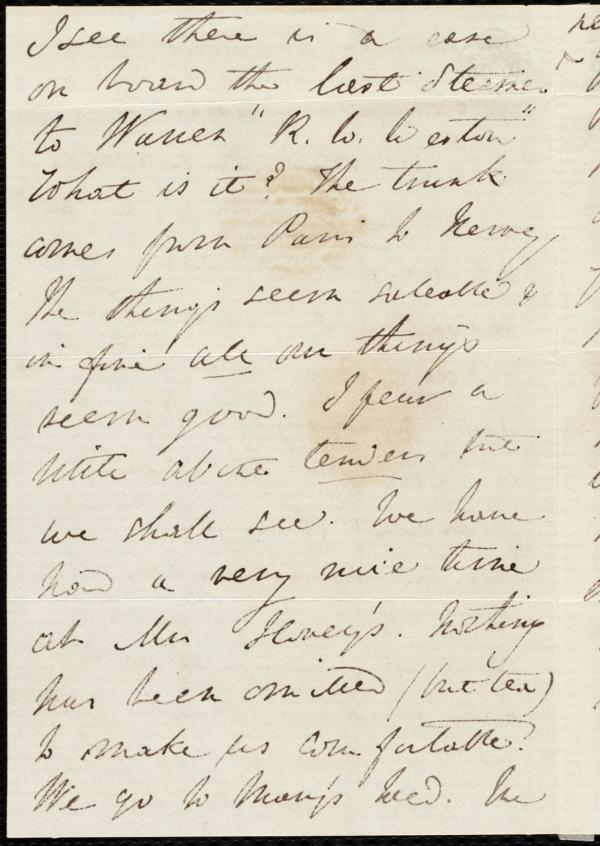 I see there is a case
on board the last Steamer
to Warren "R. W. Weston"
What is it? The trunk
comes from Paris to Hervey
The things seem saleable &
in fine all our things
seem good. I fear a
little about tenders but
we shall see. We have
had a very nice time
at Mrs Hovey's. Nothing
has been omitted (but tea)
to make us comfortable.
We go to Mary's Wed. The